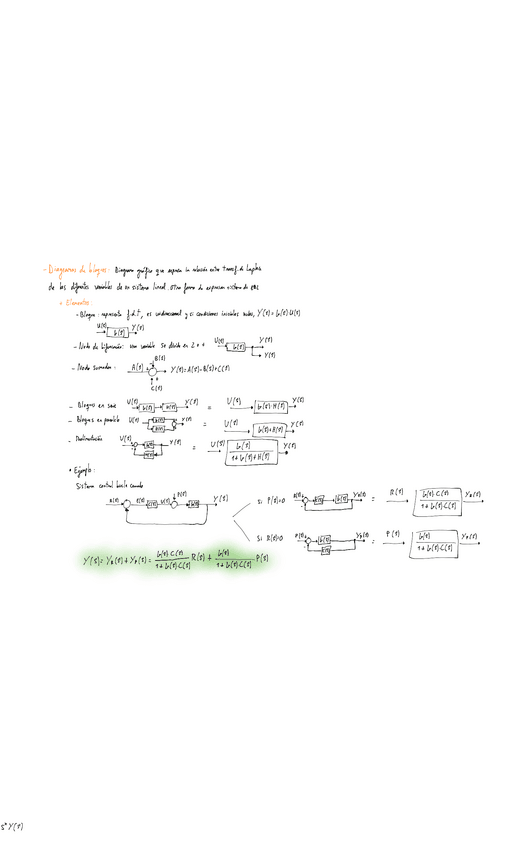 - Diagramas de bloques: Diagrama gráfico que expresa la relación entre transf. de Laplace
de las diferentes variables de un sistema lineal. Otra forma de expresar sistema de EDL
• Elementos:
- Bloque: representa f.d.t, es unidireccional y si condiciones iniciales nulas, Y(s) = G(s)·U(s)
U(s) G(s) Y(s)
- Nodo de bifurcación: una variable se divide en 2 o + U(s) G(s) Y(s)
Y(s)
- Nodo sumador: A(s) B(s) Y(s)=A(s)-B(s)+C(s)
+
C(s)
- Bloques en serie U(s) G(s) H(s) Y(s) = U(s) G(s)·H(s) Y(s)
- Bloques en paralelo U(s) Y(s) = U(s) G(s)+H(s) Y(s)
- Realimentación U(s) Y(s) = U(s) G(s) / 1+G(s)+H(s) Y(s)
• Ejemplo:
Sistema control bucle cerrado
R(s) E(s) C(s) U(s) P(s) G(s) Y(s)
Si P(s)=0 R(s) C(s) G(s) YR(s) = R(s) G(s)·C(s) / 1+G(s)·C(s) YR(s)
Si R(s)=0 P(s) G(s) C(s) YP(s) = P(s) G(s) / 1+G(s)·C(s) YP(s)
Y(s) = YR(s) + YP(s) = G(s)·C(s) / 1+G(s)·C(s) R(s) + G(s) / 1+G(s)·C(s) P(s)
Y(s)